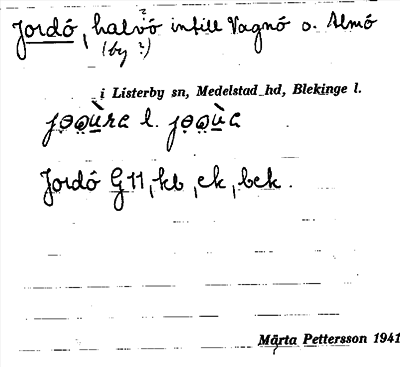 Jordö, halvö intill Vagnö o. Almö
(by?)
i Listerby sn, Medelstad hd, Blekinge l.
l.
Jordö G11, kb, ek, bek.
Märta Pettersson 1941